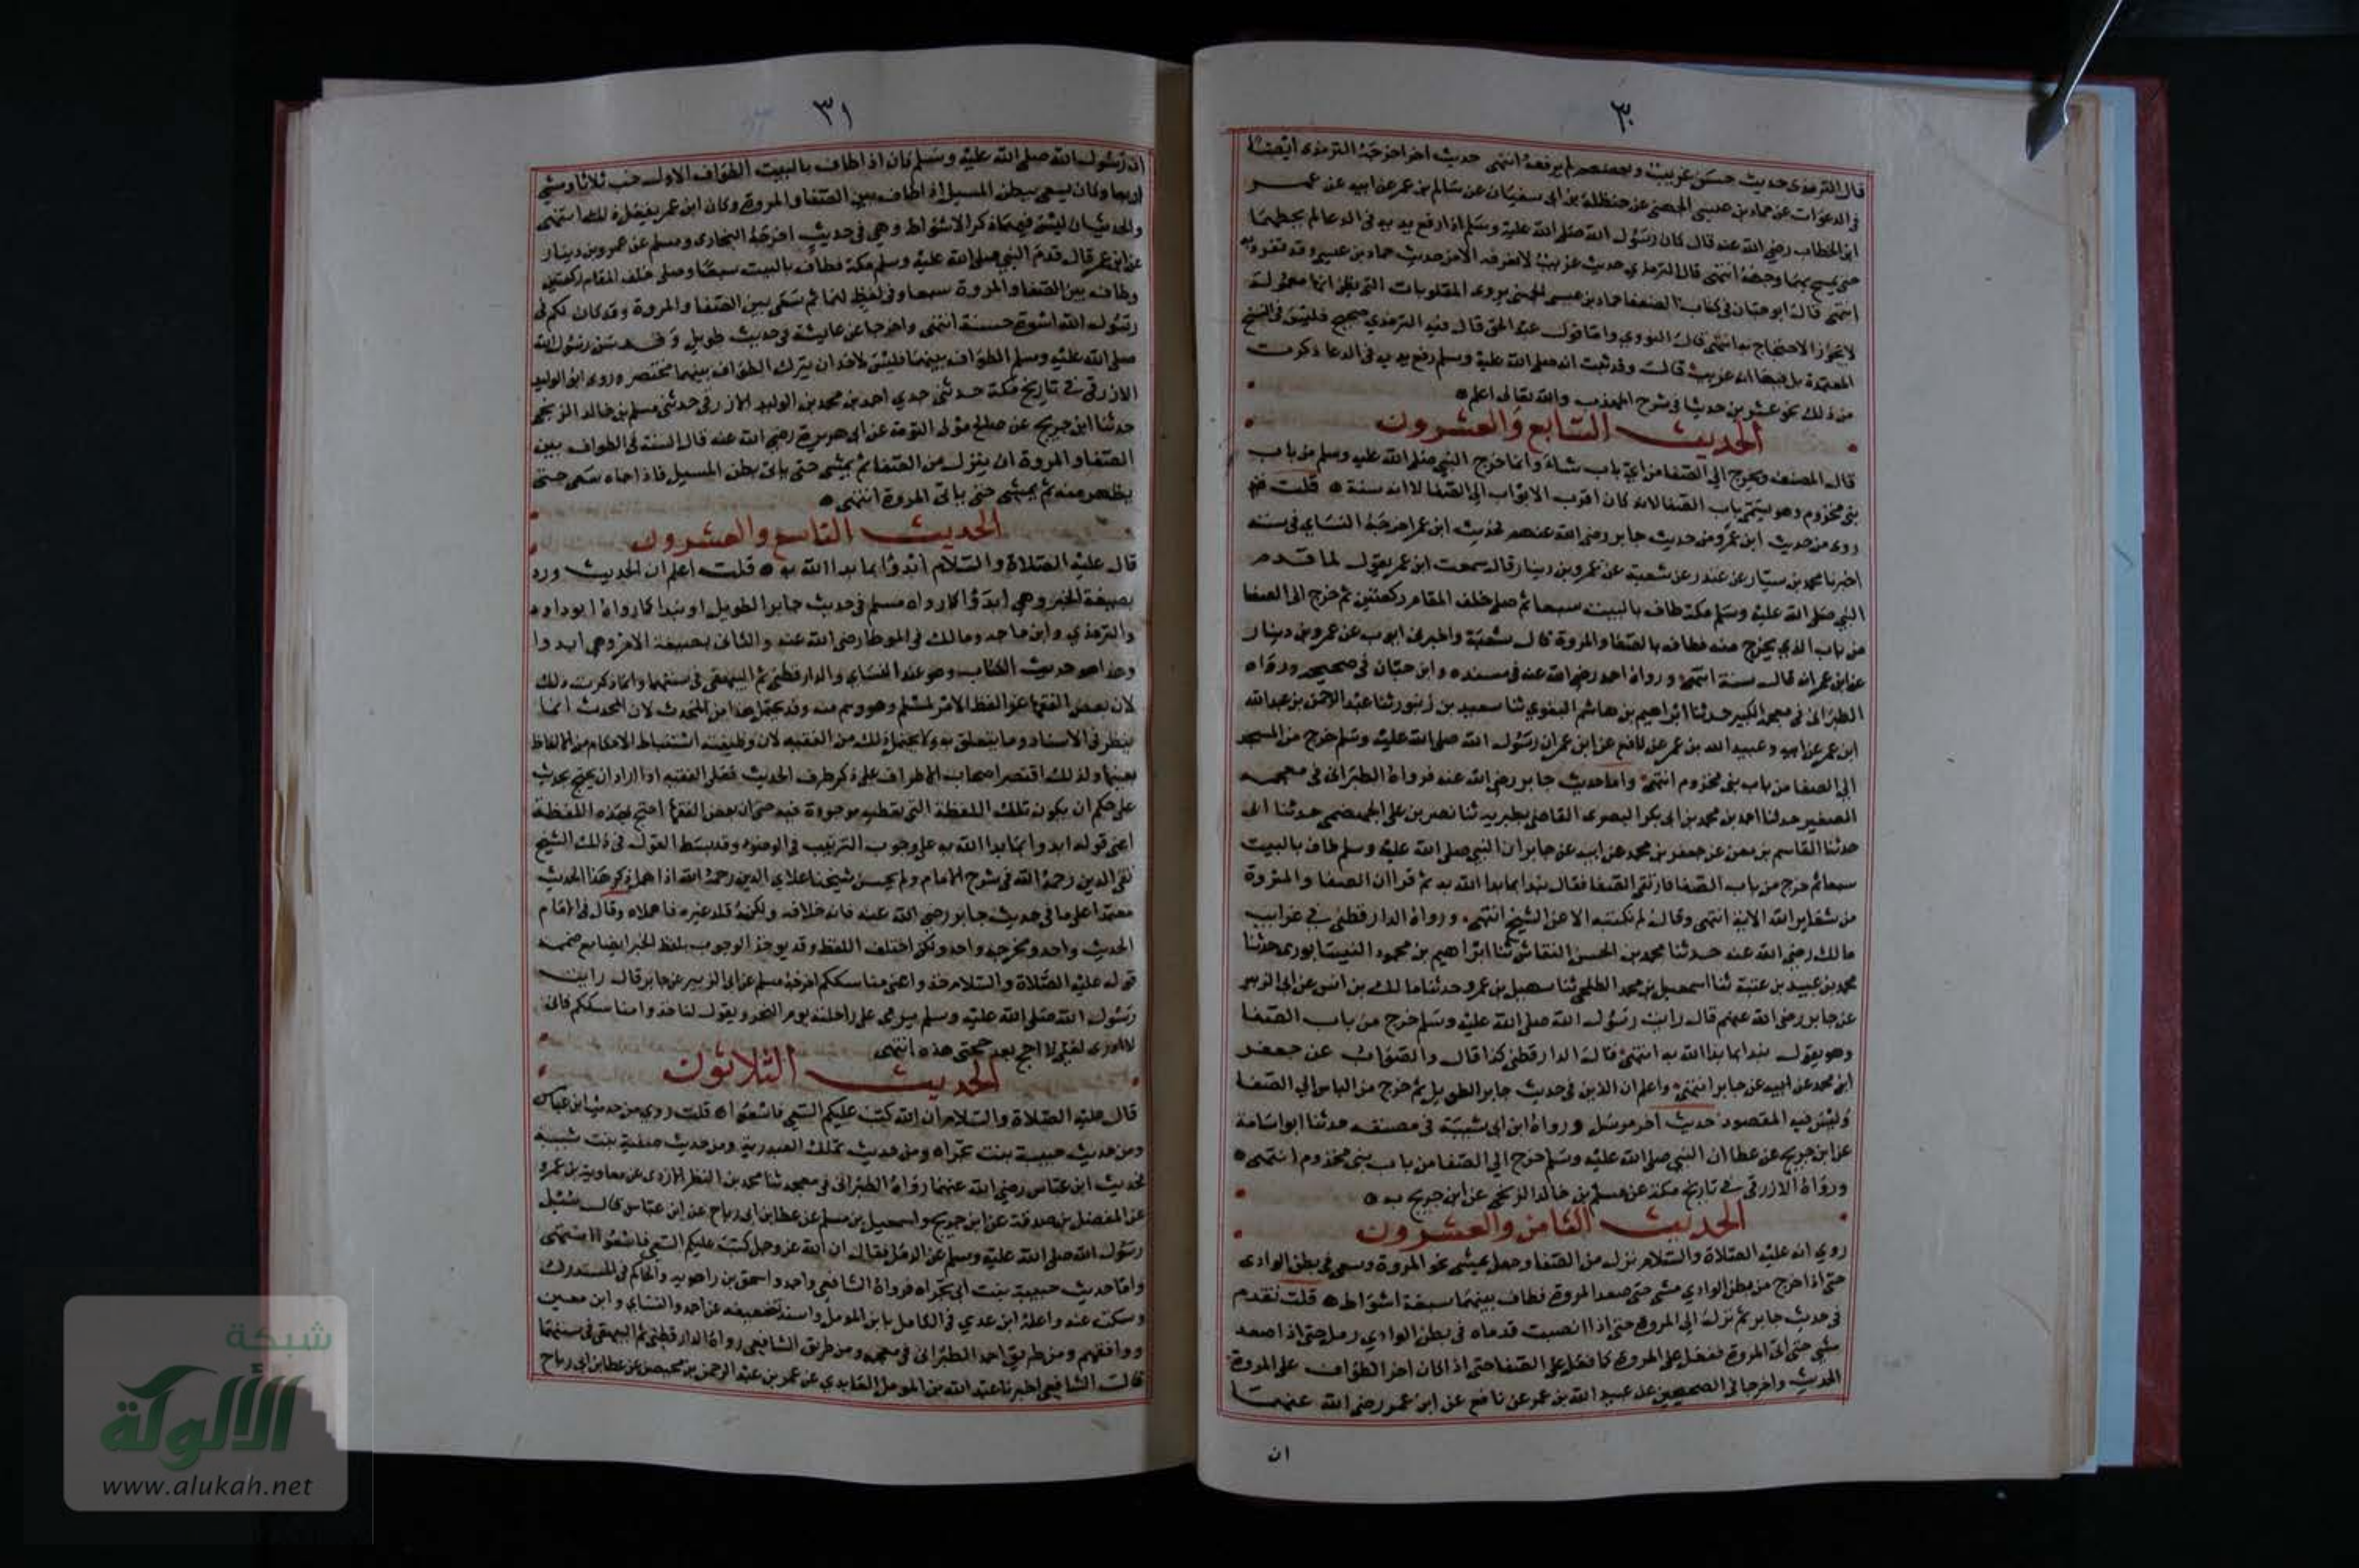 ٣٠
قال الترمذى حديث حسن غريب وبعضهم لم يرفعه انتهى حديث اخر اخرجه الترمذى ايضا
فى الدعوات عن حماد بن عيسى الجهنى عن حنظلة بن ابى سفيان عن سالم بن عمر عن ابيه عن عمر
ابن الخطاب رضى الله عنه قال كان رسول الله صلى الله عليه وسلم اذا رفع يديه فى الدعا لم يحطهما
حتى يمسح بهما وجهه انتهى قال الترمذي حديث غريب لا نعرفه الا من حديث حماد بن عيسى وقد تفرد به
انتهى قال ابو حبان فى كتاب الضعفا حماد بن عيسى الجهنى يروى المقلوبات التى يظن انها معمولة
لا يجوز الاحتجاج به انتهى قال النووي واما قول عبد الحق قال فيه الترمذي صحيح فليس فى النسخ
المعتمدة بل فيها انه غريب قال وقد ثبت انه صلى الله عليه وسلم رفع يديه فى الدعا ذكرت
من ذلك نحو عشرين حديثا فى شرح المهذب والله تعالى اعلم
الحديث السابع والعشرون
قال المصنف ويخرج الي الصفا من اي باب شاء وانما خرج النبي صلى الله عليه وسلم من باب
بنى مخزوم وهو يسمى باب الصفا لانه كان اقرب الابواب الي الصفا لا انه سنة قلت
روى من حديث ابن عمر ومن حديث جابر رضى الله عنهم فحديث ابن عمر اخرجه النساى فى سننه
اخبرنا محمد بن بشار عن غندر عن شعبة عن عمرو بن دينار قال سمعت ابن عمر يقول لما قدم
النبى صلى الله عليه وسلم مكة طاف بالبيت سبعا ثم صلى خلف المقام ركعتين ثم خرج الى الصفا
من باب الذي يخرج منه فطاف بالصفا والمروة قال شعبة واخبرنى ايوب عن عمرو بن دينار
عن ابن عمر انه قال سنة انتهى ورواه احمد رضى الله عنه فى مسنده وابن حبان فى صحيحه ورواه
الطبرانى فى معجمه الكبير حدثنا ابراهيم بن هاشم البغوي ثنا سعيد بن زنبور ثنا عبد الرحمن بن عبدالله
ابن عمر عن ابيه وعبيد الله بن عمر عن نافع عن ابن عمر ان رسول الله صلى الله عليه وسلم خرج من المسجد
الى الصفا من باب بنى مخزوم انتهى واما حديث جابر رضى الله عنه فرواه الطبرانى فى معجمه
الصغير حدثنا احمد بن محمد بن ابى بكر البصرى القاضى بطبرية ثنا نصر بن على الجهضمى حدثنا ابى
حدثنا القاسم بن معن عن جعفر بن محمد عن ابيه عن جابر ان النبي صلى الله عليه وسلم طاف بالبيت
سبعا ثم خرج من باب الصفا فارتقى الصفا فقال نبدا بما بدا الله به ثم قرا ان الصفا والمروة
من شعاير الله الاية انتهى وقال لم نكتبه الا عن الشيخ انتهى ورواه الدار قطنى فى غرايب
مالك رضى الله عنه حدثنا محمد بن الحسن النقاش ثنا ابراهيم بن محمود النيسابورى حدثنا
محمد بن عبيد بن عتبة ثنا اسمعيل بن محمد الطلحى ثنا سهيل بن عمرو حدثنا مالك بن انس عن ابى الزبير
عن جابر رضى الله عنهم قال رايت رسول الله صلى الله عليه وسلم خرج من باب الصفا
وهو يقول نبدا بما بدا الله به انتهى قال الدار قطنى كذا قال والصواب عن جعفر
ابن محمد عن ابيه عن جابر انتهى واعلم ان الذين فى حديث جابر الطويل ثم خرج من الباب الي الصفا
وليس فيه المقصود حديث اخر مرسل ورواه ابن ابى شيبة فى مصنفه حدثنا ابو اسامة
عن ابن جريج عن عطا ان النبي صلى الله عليه وسلم خرج الي الصفا من باب بنى مخزوم انتهى
ورواه الازرقى فى تاريخ مكة عن مسلم بن خالد الزنجى عن ابن جريج به
الحديث الثامن والعشرون
روي انه عليه الصلاة والسلام نزل من الصفا وجعل يمشى نحو المروة وسعى فى بطن الوادى
حتى اذا خرج من بطن الوادي مشى حتى صعد المروة فطاف بينهما سبعة اشواط قلت تقدم
فى حديث جابر ثم نزل الى المروة حتى اذا انصبت قدماه فى بطن الوادي رمل حتى اذا صعد
مشى حتى اتى المروة ففعل على المروة كما فعل على الصفا حتى اذا كان اخر الطواف على المروة
الحديث واخرجا فى الصحيحين عن عبيد الله بن عمر عن نافع عن ابن عمر رضى الله عنهما
ان
٣١
ان رسول الله صلى الله عليه وسلم كان اذا طاف بالبيت الطواف الاول خب ثلاثا ومشى
اربعا وكان يسعى ببطن المسيل اذا طاف بين الصفا والمروة وكان ابن عمر يفعل ذلك انتهى
والحديثان ليس فيهما ذكر الاشواط وهى فى حديث اخرجه البخارى ومسلم عن عمرو بن دينار
عن ابن عمر قال قدم النبي صلى الله عليه وسلم مكة فطاف بالبيت سبعا وصلى خلف المقام ركعتين
وطاف بين الصفا والمروة سبعا وفى لفظ لهما ثم سعى بين الصفا والمروة وقد كان لكم فى
رسول الله اسوة حسنة انتهى واخرجا عن عايشة فى حديث طويل وقد سن رسول الله
صلى الله عليه وسلم الطواف بينهما فليس لاحد ان يترك الطواف بينهما مختصر وروى ابو الوليد
الازرقى فى تاريخ مكة حدثنى جدي احمد بن محمد بن الوليد الازرقى حدثنى مسلم بن خالد الزنجى
حدثنا ابن جريج عن صالح مولى التومة عن ابى هريرة رضى الله عنه قال السنة فى الطواف بين
الصفا والمروة ان ينزل من الصفا ثم يمشى حتى ياتى بطن المسيل فاذا جاه سعى حتى
يظهر منه ثم يمشى حتى ياتى المروة انتهى
الحديث التاسع والعشرون
قال عليه الصلاة والسلام ابدؤا بما بدا الله به قلت اعلم ان الحديث ورد
بصيغة الخبر وهي ابدؤا كما رواه مسلم فى حديث جابر الطويل او نبدا كما رواه ابو داود
والترمذي وابن ماجه ومالك فى الموطا رضى الله عنه والثانى بصيغة الامر وهى ابدوا
وهذا هو حديث الكتاب وهو عند النساى والدارقطنى ثم البيهقى فى سننهما وانما ذكرت ذلك
لان بعض الفقها عزا لفظ الامر لمسلم وهو وهم منه وقد يحتمل هذا من المحدث لان المحدث انما
ينظر فى الاسناد وما يتعلق به ولا يحتمل ذلك من الفقيه لان وظيفته استنباط الاحكام من الالفاظ
بعينها ولذلك اقتصر اصحاب الاطراف على ذكر طرف الحديث فعلى الفقيه اذا اراد ان يحتج بحديث
على حكم ان يكون تلك اللفظة التى تعطيه موجودة فيه حتى ان بعض الفقها احتج بهذه اللفظة
اعنى قوله ابدوا بما بدا الله به على وجوب الترتيب فى الوضوء وقد بسط القول فى ذلك الشيخ
تقى الدين رحمه الله فى شرح الامام ولم يحسن شيخنا علاى الدين رحمه الله اذ اهمل ذكر هذا الحديث
معتمدا على ما فى حديث جابر رضى الله عنه فانه خلافه ولكنه قلد غيره فاهمله وقال فى الامام
الحديث واحد ومخرجه واحد ولكن اختلف اللفظ وقد يوخذ الوجوب بلفظ الخبر ايضا مع ضميمة
قوله عليه الصلاة والسلام خذوا عنى مناسككم اخرجه مسلم عن ابى الزبير عن جابر قال رايت
رسول الله صلى الله عليه وسلم يرمى على راحلته يوم النحر ويقول لنا خذوا مناسككم فانى
لا ادرى لعلى لا احج بعد حجتى هذه انتهى
الحديث الثلاثون
قال عليه الصلاة والسلام ان الله كتب عليكم السعى فاسعوا قلت روي من حديث ابن عباس
ومن حديث حبيبة بنت تجراه ومن حديث تملك العبدرية ومن حديث صفية بنت شيبة
فحديث ابن عباس رضى الله عنهما رواه الطبرانى فى معجمه ثنا محمد بن النظر الازدى عن معاوية بن عمرو
عن المفضل بن صدقة عن ابن جريج واسمعيل بن مسلم عن عطا بن ابى رباح عن ابن عباس قال سئل
رسول الله صلى الله عليه وسلم عن الرمل فقال ان الله عز وجل كتب عليكم السعى فاسعوا انتهى
واما حديث حبيبة بنت ابى تجراه فرواه الشافعى واحمد واسحق بن راهويه والحاكم فى المستدرك
وسكت عنه واعله ابن عدي فى الكامل بابن المومل واسند تضعيفه عن احمد والنساى وابن معين
ووافقهم ومن طريق احمد الطبرانى فى معجمه ومن طريق الشافعى رواه الدار قطنى ثم البيهقى فى سننهما
قال الشافعى اخبرنا عبد الله بن المومل العابدي عن عمر بن عبد الرحمن بن محيصن عن عطا بن ابى رباح
شبكة
الألوكة
www.alukah.net